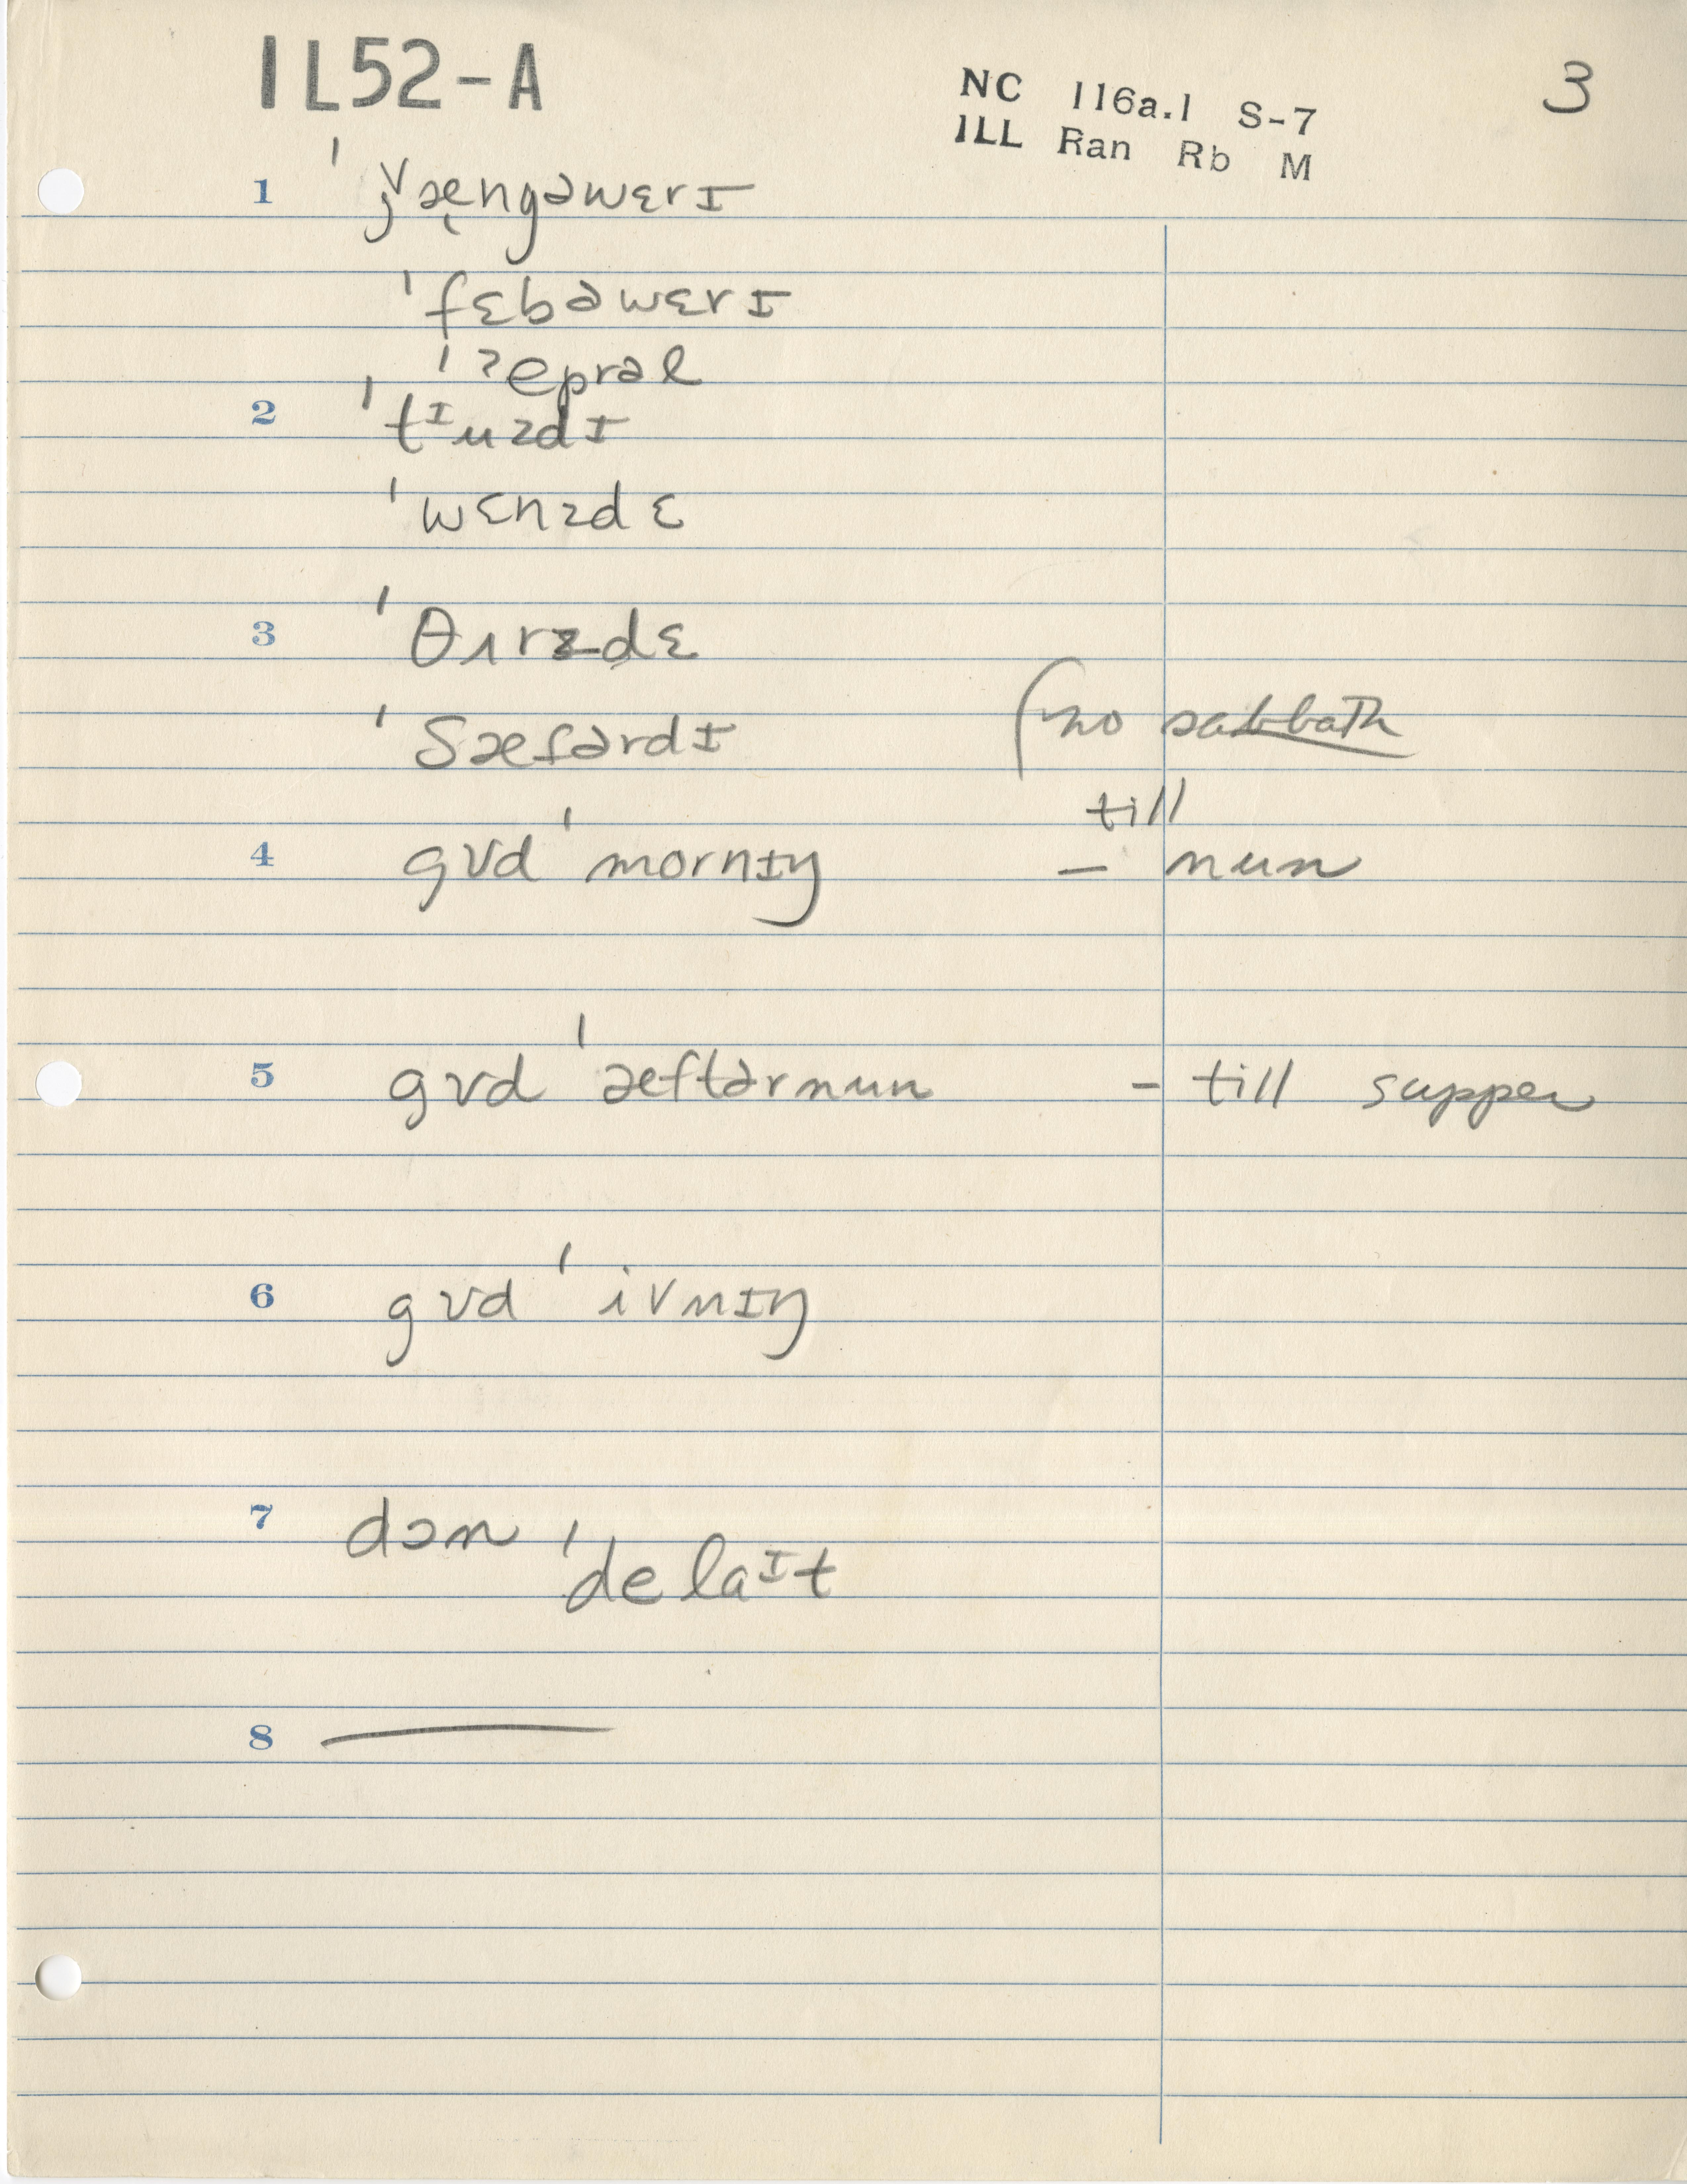 IL52-A
NC 116a.1 S-7
ILL Ran Rb M
3
1 ˈǰængəwɛrɪ
ˈfɛbəwɛrɪ
ˈʔeprəl
2 ˈtᶦuzdɪ
ˈwɛnzdɛ
3 ˈθɜrzdɛ
ˈsæfərdɪ
(no sabbath
till
4 gʊd ˈmornɪŋ – nun
5 gʊd ˈæftərnun – till supper
6 gʊd ˈivnɪŋ
7 dɔn ˈdelaᶦt
8 —